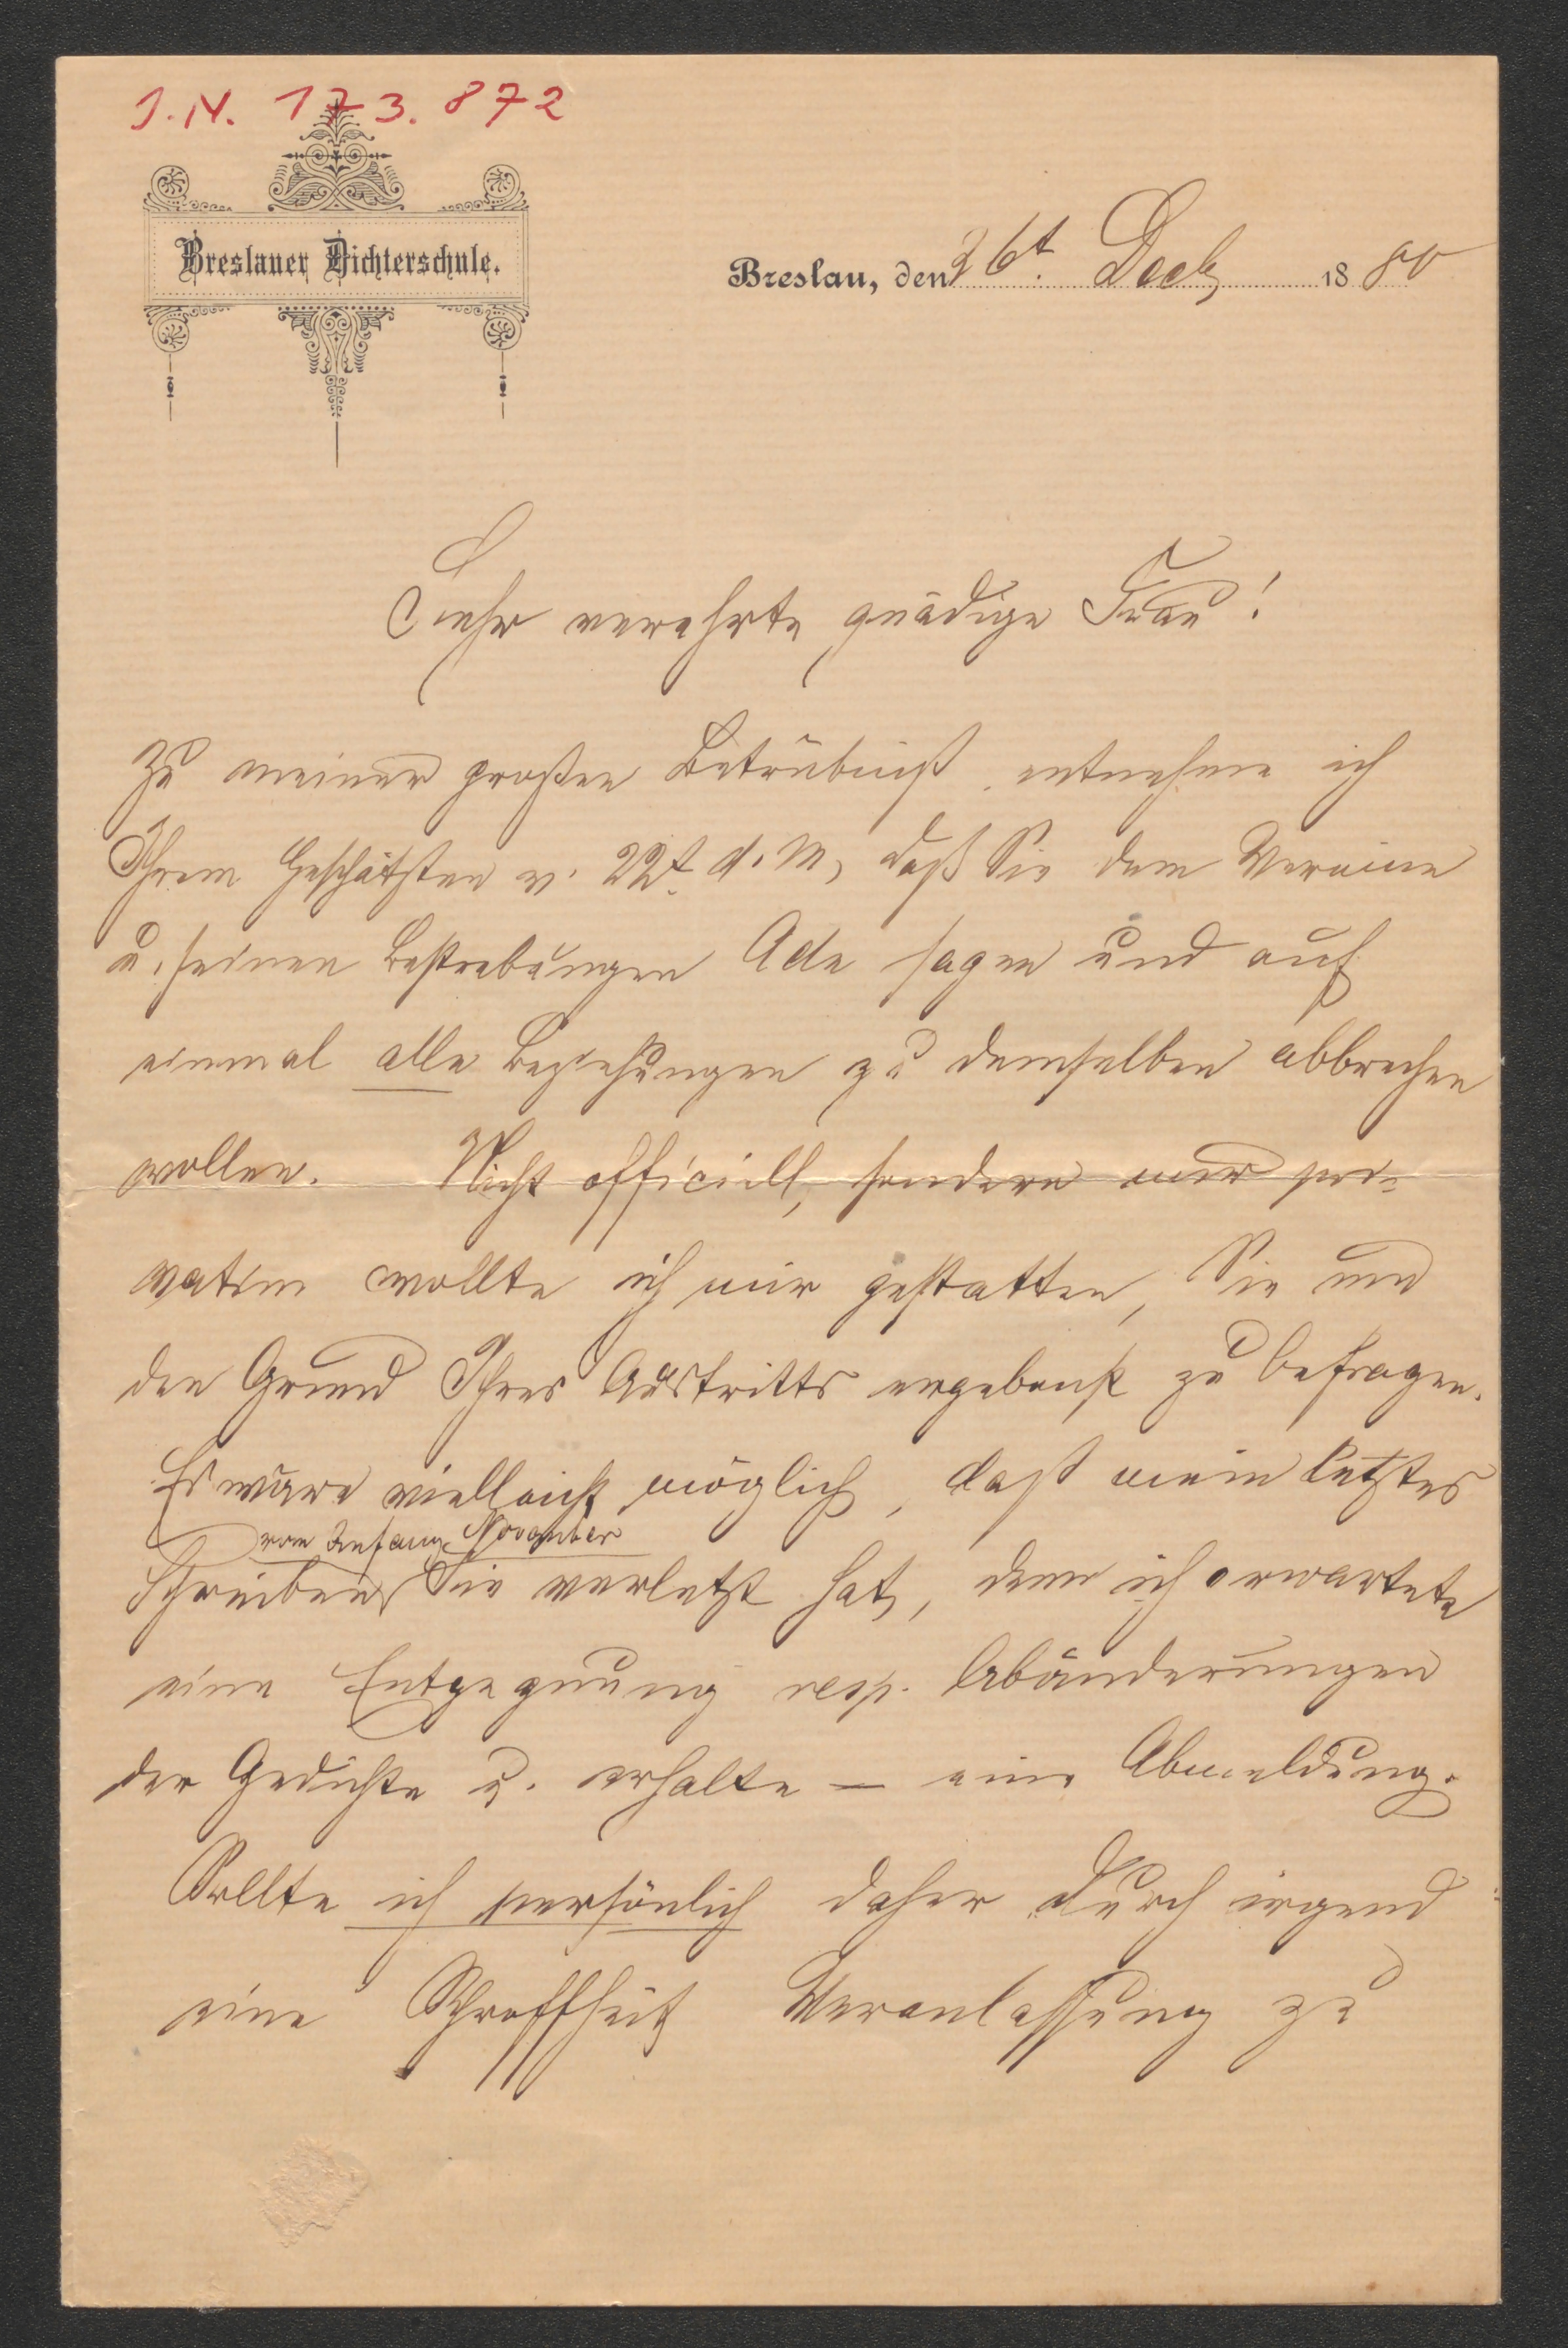 J.N. 173.872
Breslauer Dichterschule.
Breslau, den 26t. Decb 1880
Sehr verehrte gnädige Frau!
Zu meiner großen Betrübniß entnehme ich
Ihrem Geschätzten v. 22t. d. M, daß Sie dem Vereine
u. seinen Bestrebungen Ade sagen und auf
einmal alle Beziehungen zu demselben abbrechen
wollen. Nicht officiell, sondern nur pri-
vatim wollte ich mir gestatten, Sie um
den Grund Ihres Austritts ergebenst zu befragen.
Es wäre vielleicht möglich, daß mein letztes
vom Anfang November
Schreiben Sie verletzt hat, denn ich erwartete
eine Entgegnung resp. Abänderungen
der Gedichte u. erhalte – eine Abmeldung.
Sollte ich persönlich daher durch irgend
eine Schroffheit Veranlassung zu